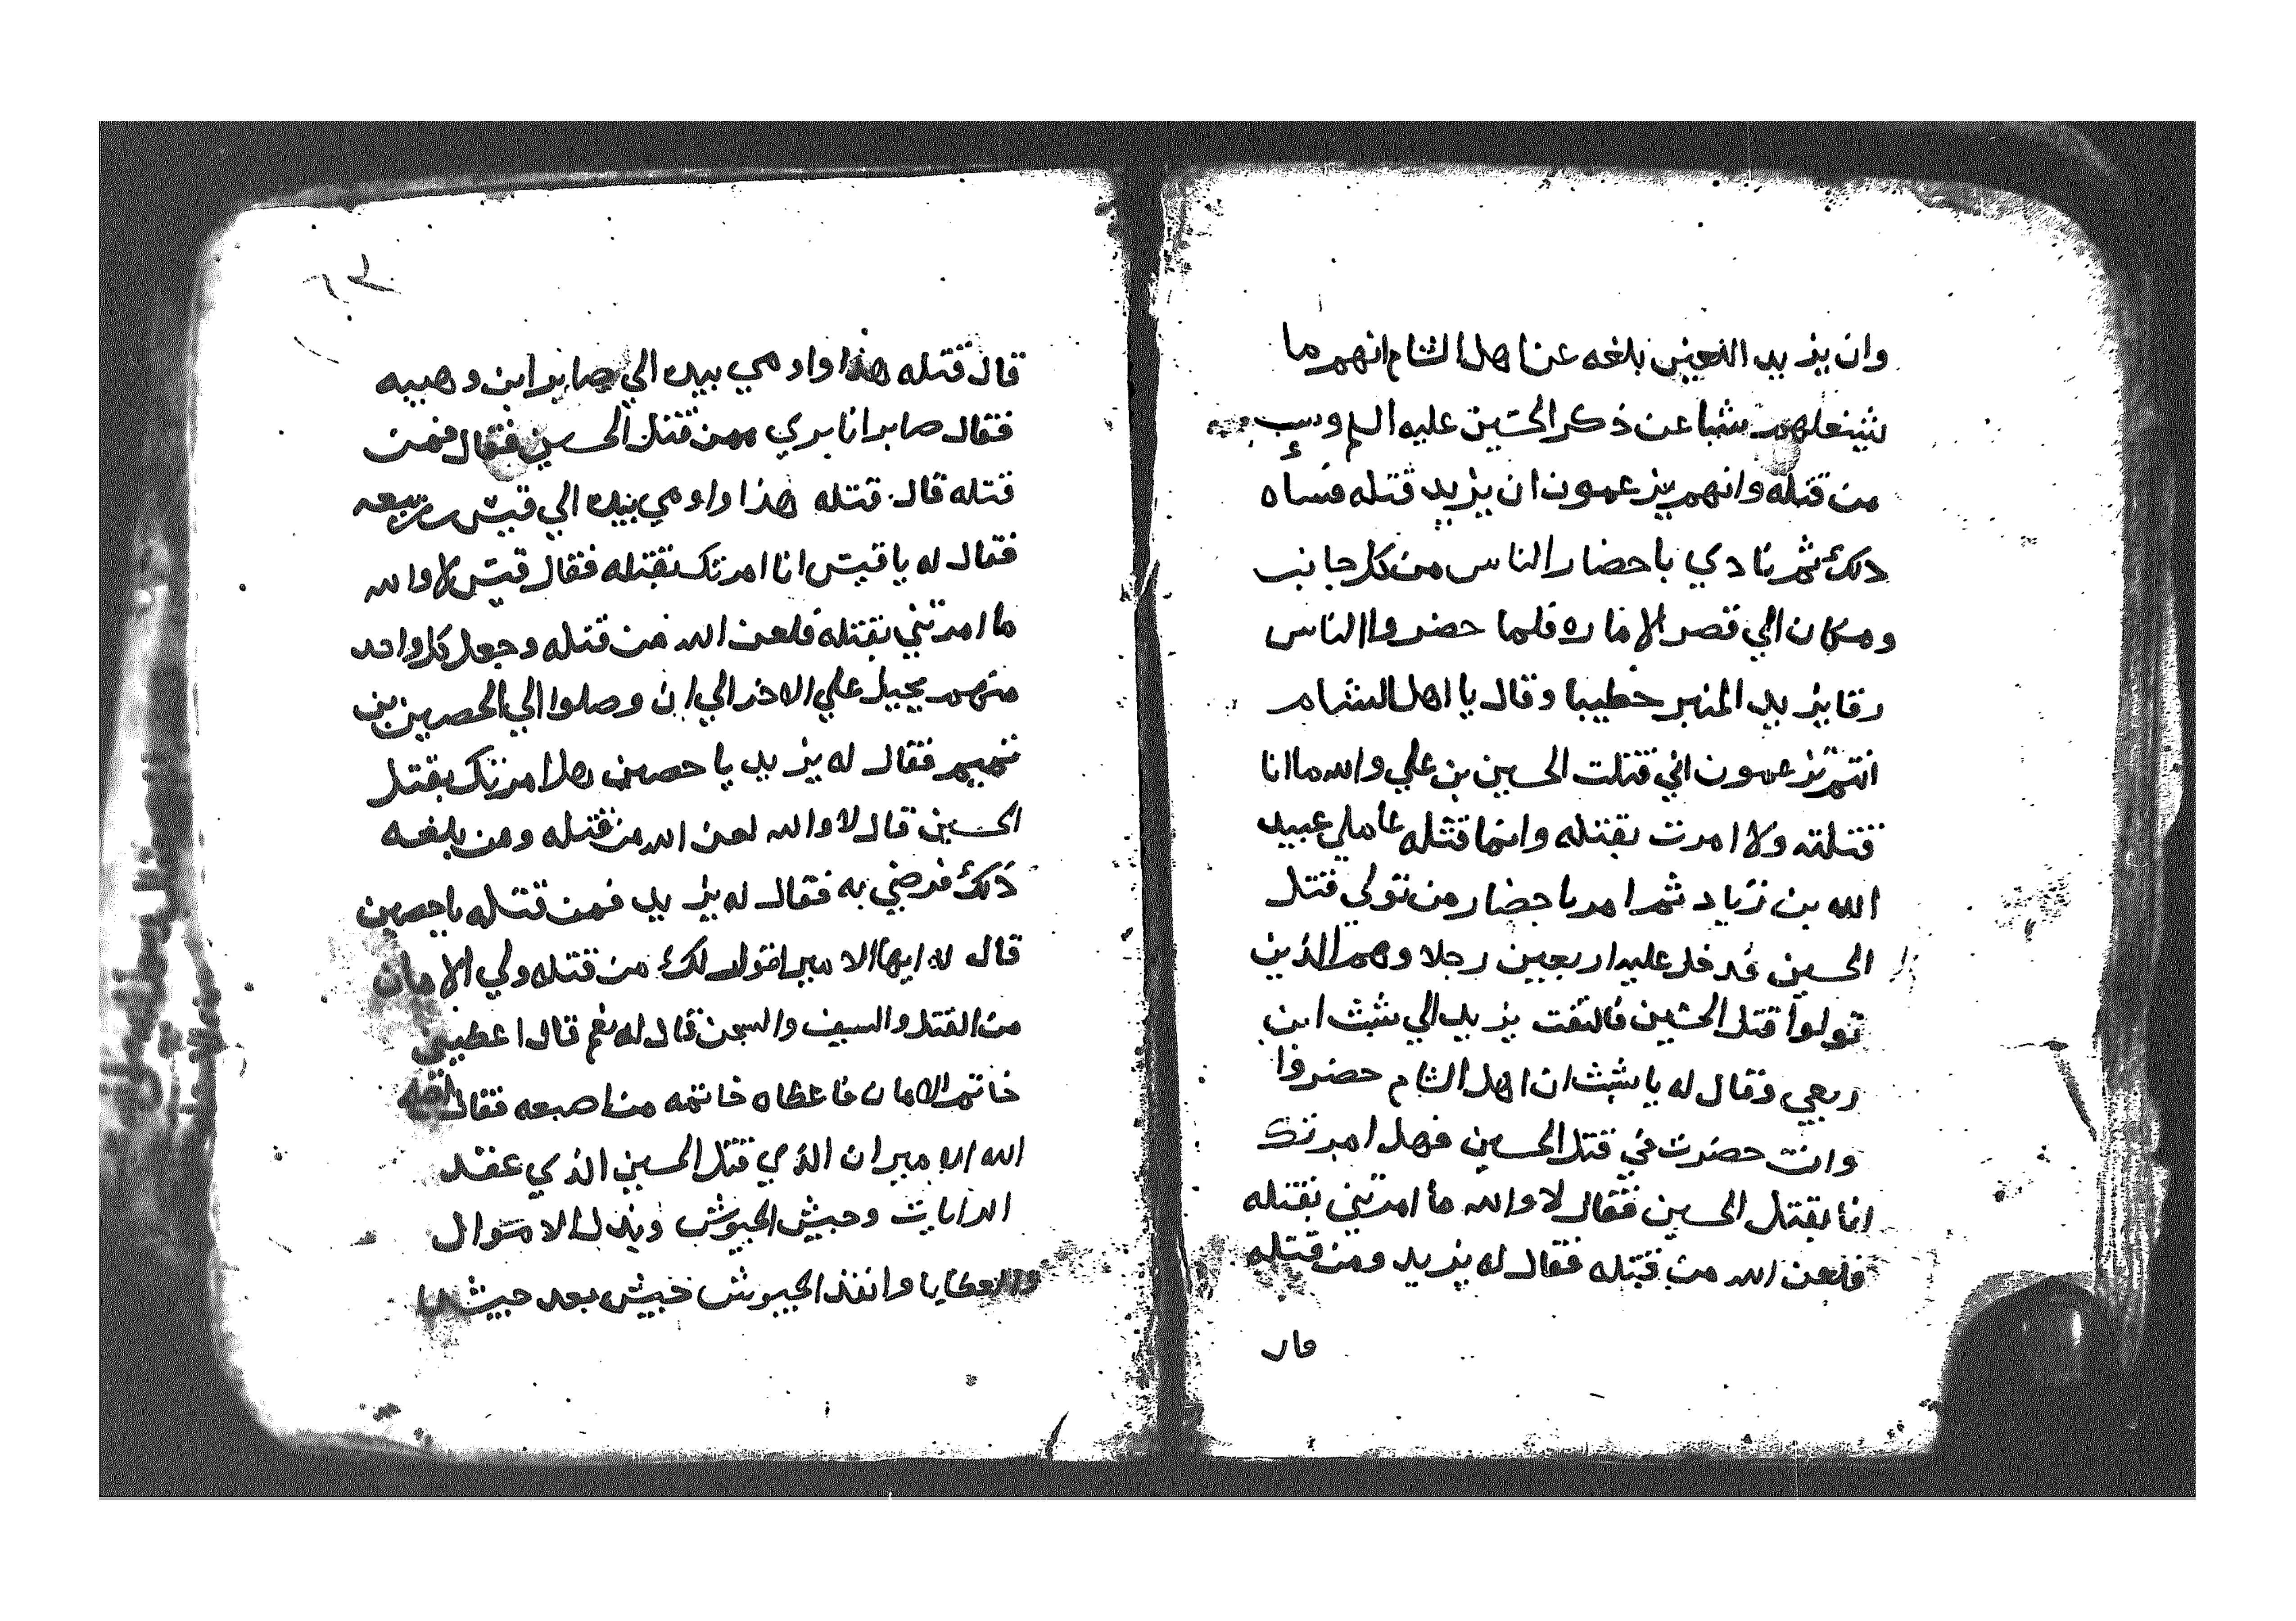 وان يزيد اللعين بلغه عن اهل الشام انهم ما
يشغلهم شيا عن ذكر الحسين عليه السلم وسب
من قتله وانهم يزعمون ان يزيد قتله فساه
ذلك ثم نادي باحضار الناس من كل جانب
ومكان الي قصر الاماره فلما حضروا الناس
رقا يزيد المنبر خطيبا وقال يا اهل الشام
انتم تزعمون اني قتلت الحسين بن علي والله ما انا
قتلته ولا امرت بقتله وانما قتله عاملي عبيد
الله بن زياد ثم امر باحضار من تولي قتل
الحسين فدخل عليه اربعين رجلا وهم الذين
تولوا قتل الحسين فالتفت يزيد الي شبث ابن
ربعي وقال له يا شبث ان اهل الشام حضروا
وانت حضرت في قتل الحسين فهل امرتك
انا بقتل الحسين فقال لا والله ما امرتني بقتله
فلعن الله من قتله فقال له يزيد ومن قتله
قال
قال قتله هذا واومي بيده الي صابر ابن وهيبه
فقال صابر انا بري ممن قتل الحسين فقال فمن
قتله قال قتله هذا واومي بيده الي قيس بن ربيعه
فقال له يا قيس انا امرتك بقتله فقال قيس لا والله
ما امرتني بقتله فلعن الله من قتله وجعل كل واحد
منهم يحيل علي الاخر الي ان وصلوا الي الحصين بن
نميم فقال له يزيد يا حصين هل امرتك بقتل
الحسين قال لا والله لعن الله من قتله ومن بلغه
ذلك فرضي به فقال له يزيد فمن قتله يا حصين
قال له ايها الامير اقول لك من قتله ولي الامان
من القتل والسيف والسجن قال له نعم قال اعطيني
خاتم الامان فاعطاه خاتمه من اصبعه فقال
الله الامير ان الذي قتل الحسين الذي عقد
الرايات وجيش الجيوش وبذل الاموال
والعطايا وانفذ الجيوش جيش بعد جيش